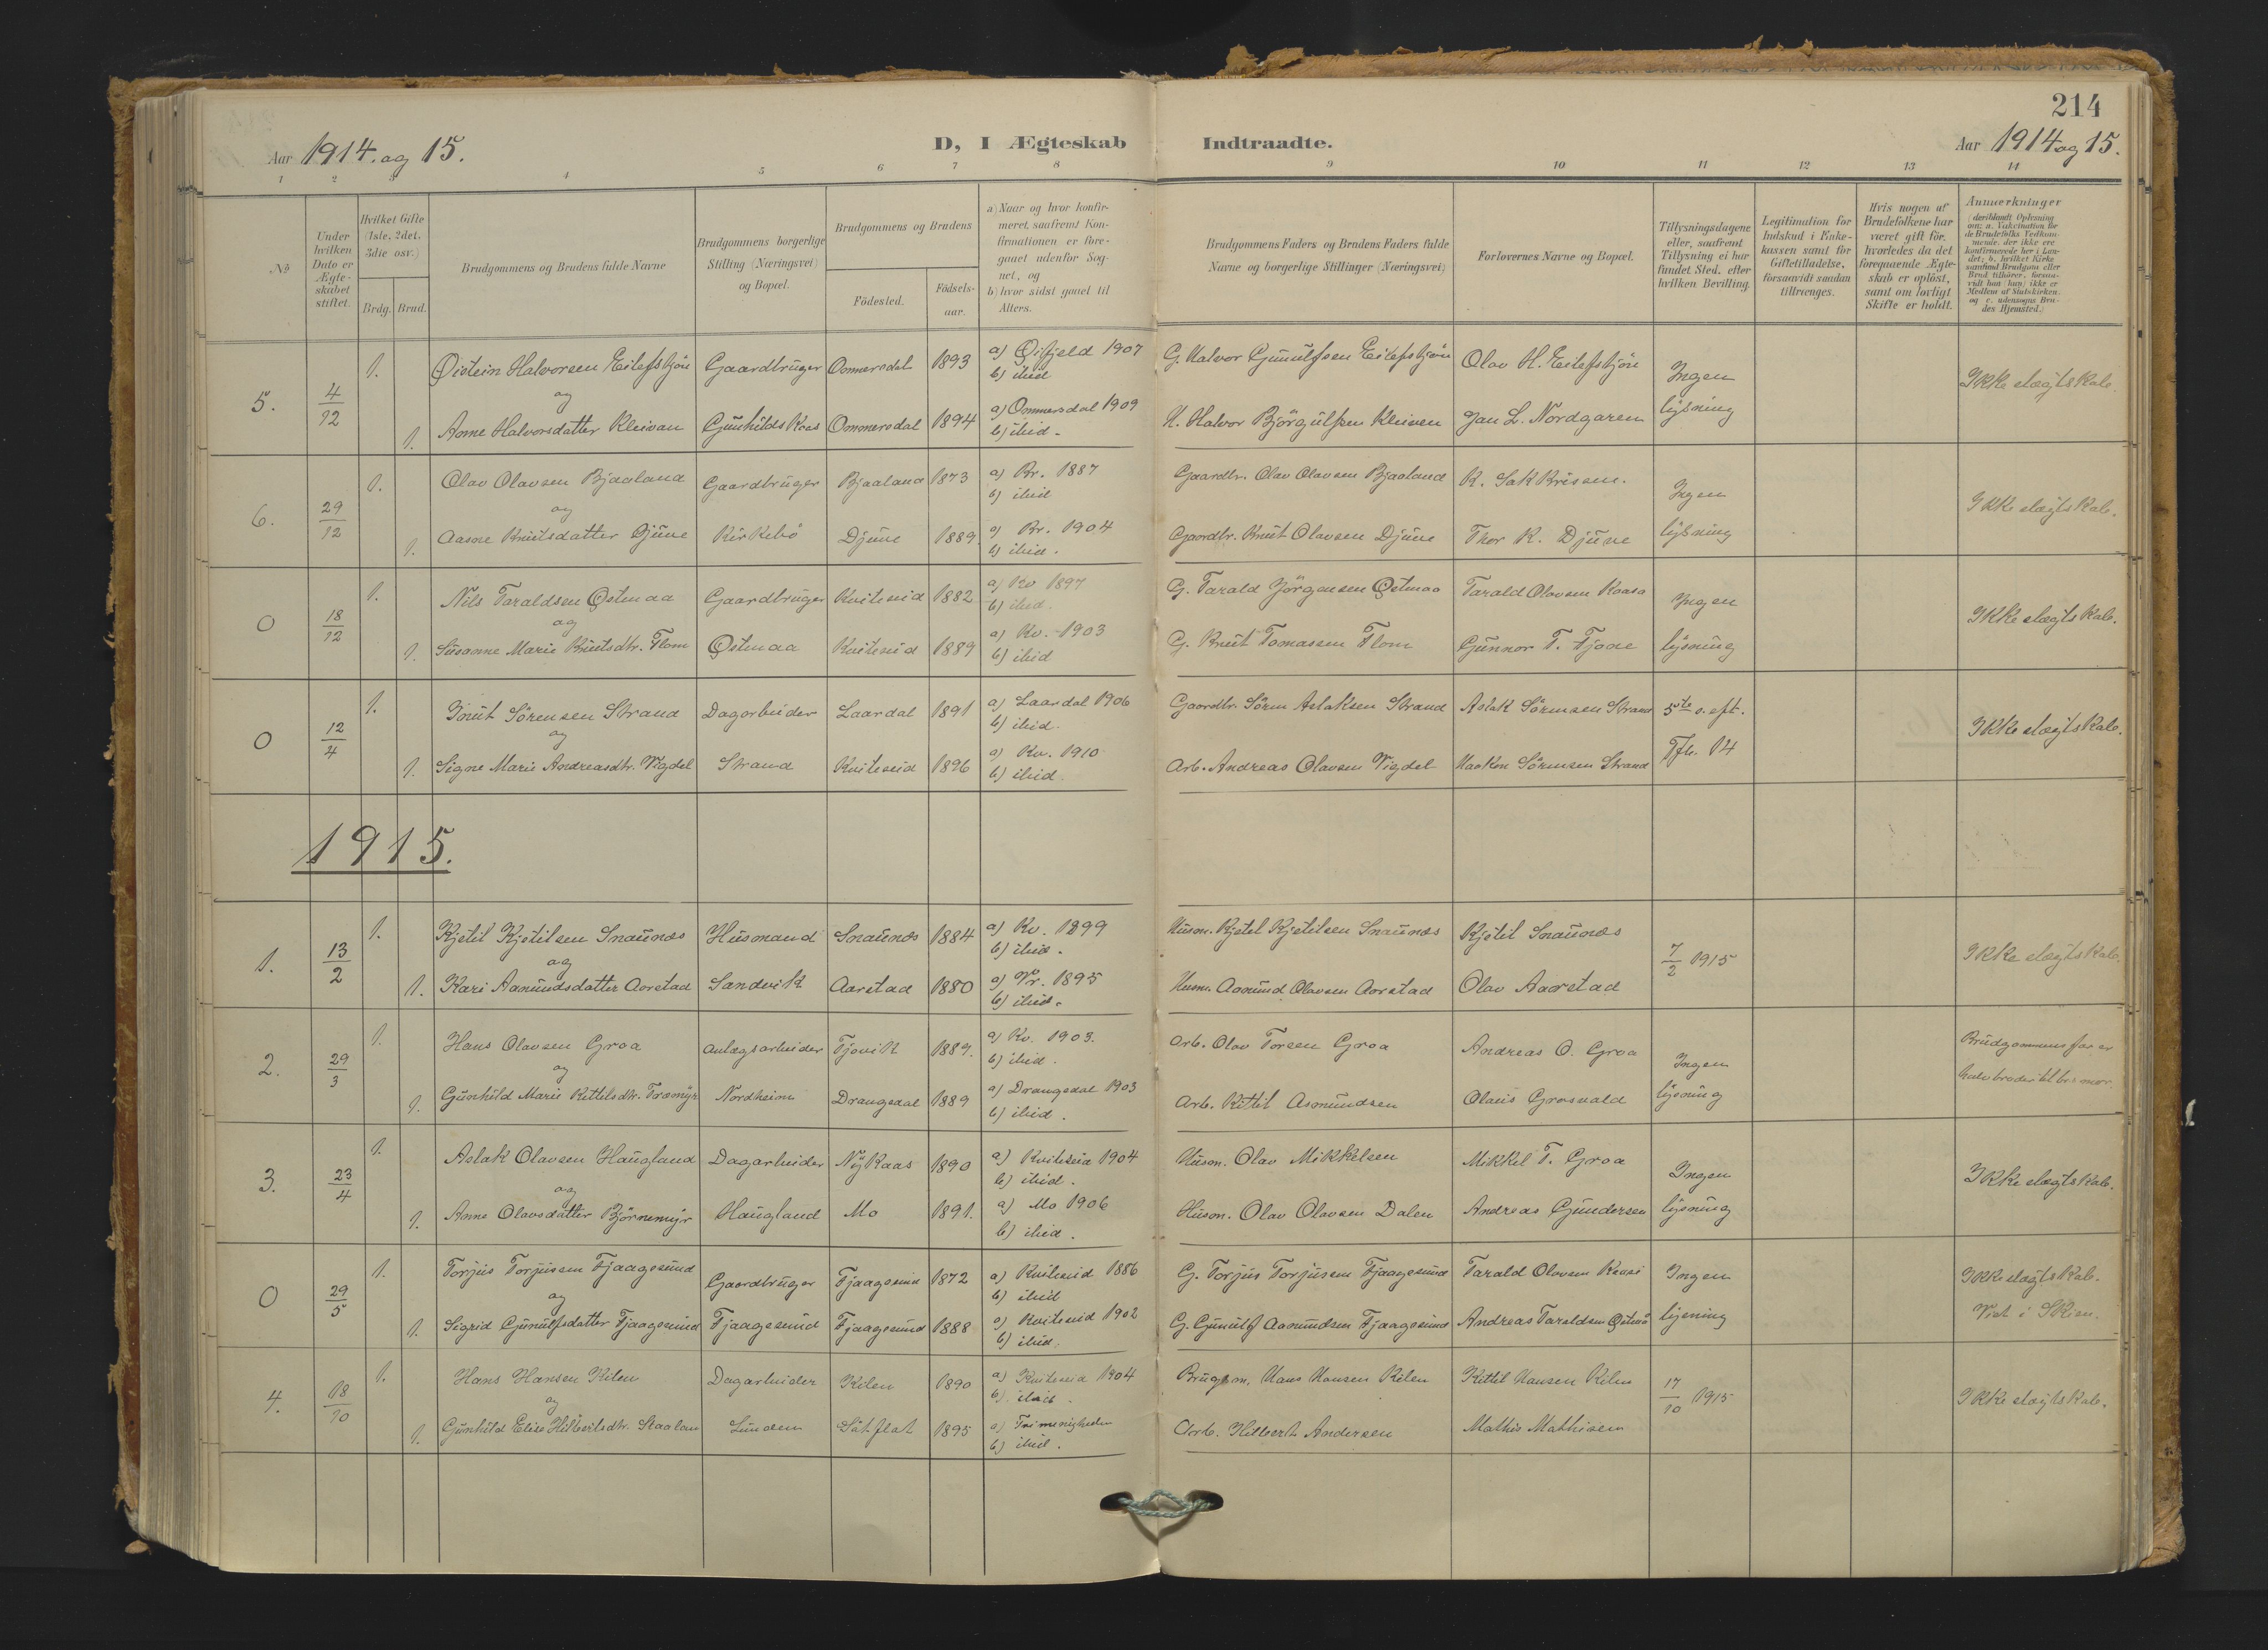 214
Aar 1914. og 15.
D, I Ægteskab Indtraadte.
Aar 1914 og 15.
1 2 3 4 5 6 7 8 9 10 11 12 13 14
No
Under hvilken Dato er Ægteskabet stiftet.
Hvilket Gifte (1ste, 2det, 3die osv.)
Brdg. Brud.
Brudgommens og Brudens fulde Navne
Brudgommens borgerlige Stilling (Næringsvei) og Bopæl.
Brudgommens og Brudens
Fødested.
Fødselsaar.
a) Naar og hvor konfirmeret, saafremt Konfirmationen er foregaaet udenfor Sognet, og
b) hvor sidst gaaet til Alters.
Brudgommens Faders og Brudens Faders fulde Navne og borgerlige Stillinger (Næringsvei)
Forlovernes Navne og Bopæl.
Tillysningsdagene eller, saafremt Tillysning ei har fundet Sted, efter hvilken Bevilling.
Legitimation for Indskud i Enkekassen samt for Giftetilladelse, forsaavidt saadan tiltrænges.
Hvis nogen af Brudefolkene har været gift før, hvorledes da det foregaaende Ægteskab er opløst, samt om lovligt Skifte er holdt.
Anmærkninger
(deriblandt Oplysning om: a. Vakcination for de Brudefolks Vedkommende, der ikke ere konfirmerede her i Landet; b. hvilket Kirkesamfund Brudgom eller Brud tilhører, forsaavidt han (hun) ikke er Medlem af Statskirken, og c. udensogns Brudes Hjemsted.)
5. 4/12 1. Øistein Halvorsen Eilefstjön Gaardbruger Ommersdal 1893 a) Øifjeld 1907 b) ibid G. Halvor Gunulfsen Eilefstjön Olav H. Eilefstjön Ingen Ikke slægtskab.
og
1. Anne Halvorsdatter Kleivan Gunhildskaas Ommersdal 1894 a) Ommersdal 1909 b) ibid. H. Halvor Björgulfsen Kleiven Jan L. Nordgaren lysning
6. 29/12 1. Olav Olavsen Bjaaland Gaardbruger Bjaaland 1873 a) Br. 1887 b) ibid Gaardbr. Olav Olavsen Bjaaland K. Sakkrisen. Ingen Ikke slægtskab.
og
1. Aasne Knutsdatter Djuve Kirkebö Djuve 1889. a) Br. 1904 b) ibid. Gaardbr. Knut Olavsen Djuve Thor K. Djuve lysning
0 18/12 1. Nils Taraldsen Østmaa Gaardbruger Kviteseid 1882 a) Kv 1897 b) ibid. G. Tarald Jörgensen Østmaa Tarald Olavsen Kaasa Ingen Ikke slægtskab.
og
1. Susanne Marie Knutsdtr. Flom Østmaa Kviteseid 1889 a) Kv. 1903 b) ibid G. Knut Tomassen Flom Gunnar T. Tjone lysning
0 12/4 1. Knut Sörensen Strand Dagarbeider Laardal 1891 a) Laardal 1906 b) ibid. Gaardbr. Sören Aslaksen Strand Aslak Sörensen Strand 5te s. eft. Ikke slægtskab.
og
1. Signe Marie Andreasdtr. Vigdel Strand Kviteseid 1896 a) Kv. 1910 b) ibid. Arb. Andreas Olavsen Vigdel Haakon Sörensen Strand 14
1915.
1. 13/2 1. Kjetil Kjetilsen Snaunæs Husmand Snaunæs 1884 a) Kv. 1899 b) ibid. Husm. Kjetil Kjetilsen Snaunæs Kjetil Snaunæs 7/2 1915 Ikke slægtskab.
og
1. Kari Aanundsdatter Aarstad Sandvik Aarstad 1880 a) Vr. 1895 b) ibid. Husm. Aanund Olavsen Aarstad Olav Aarstad
2. 29/3 1. Hans Olavsen Groa Anlægsarbeider Tjovik 1889. a) Kv. 1903. b) ibid. Arb. Olav Torsen Groa Andreas O. Groa Ingen Brudgommens far er
og
1. Gunhild Marie Kittilsdtr. Træmyr Nordheim Drangedal 1889 a) Drangedal 1903 b) ibid. Arb. Kittil Asmundsen Olaus Grosvald lysning halvbroder til br.s mor.
3. 23/4 1. Aslak Olavsen Haugland Dagarbeider Nykaas 1890 a) Kviteseid 1904 b) ibid. Husm. Olav Mikkelsen Mikkel T. Groa Ingen Ikke slægtskab.
og
1. Anne Olavsdatter Björnemyr Haugland Mo 1891. a) Mo 1906 b) ibid. Husm. Olav Olavsen Dalen Andreas Gundersen lysning
0 29/5 1. Torjus Torjusen Fjaagesund Gaardbruger Fjaagesund 1872 a) Kviteseid 1886 b) ibid G. Torjus Torjusen Fjaagesund Tarald Olavsen Kaasa Ingen Ikke slægtskab.
og
1. Sigrid Gunulfsdatter Fjaagesund Fjaagesund Fjaagesund 1888 a) Kviteseid 1902 b) ibid. G. Gunulf Aanundsen Fjaagesund Andreas Taraldsen Østmo lysning Viet i Skien.
4. 18/10 1. Hans Hansen Kilen Dagarbeider Kilen 1890 a) Kviteseid 1904 b) ibid. Brugsm. Hans Hansen Kilen Kittil Hansen Kilen 17/10 1915 Ikke slægtskab.
og
1. Gunhild Elise Hilbertsdtr. Staaland Lunden Slåtflat 1895 a) Frimenigheden b) ibid. Arb. Hilbert Andersen Mathis Mathisen